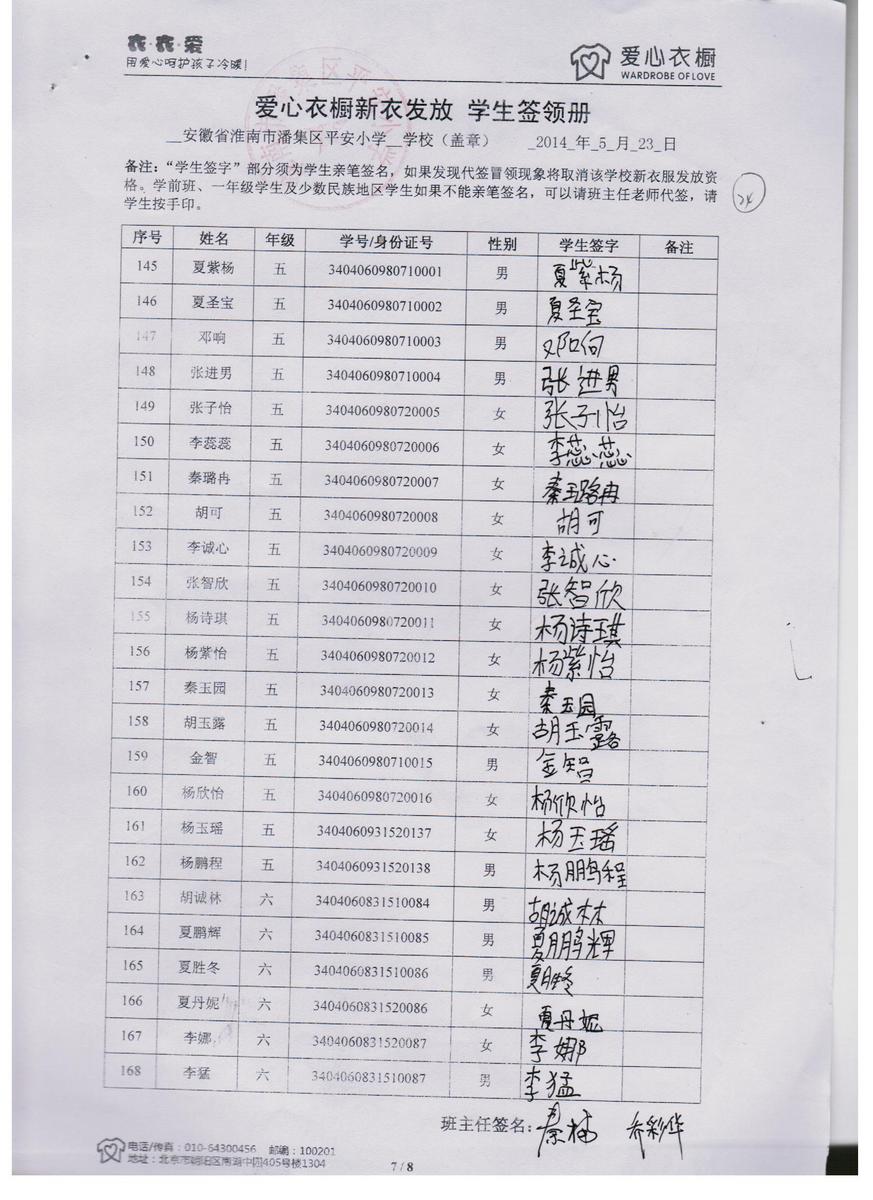 衣·衣·爱
用爱心呵护孩子冷暖!
爱心衣橱
WARDROBE OF LOVE
爱心衣橱新衣发放 学生签领册
__安徽省淮南市潘集区平安小学__学校（盖章） _2014_年_5_月_23_日
备注:“学生签字”部分须为学生亲笔签名，如果发现代签冒领现象将取消该学校新衣服发放资
格。学前班、一年级学生及少数民族地区学生如果不能亲笔签名，可以请班主任老师代签，请
学生按手印。
24
序号 姓名 年级 学号/身份证号 性别 学生签字 备注
145 夏紫杨 五 3404060980710001 男 夏紫杨
146 夏圣宝 五 3404060980710002 男 夏圣宝
147 邓响 五 3404060980710003 男 邓响
148 张进男 五 3404060980710004 男 张进男
149 张子怡 五 3404060980720005 女 张子怡
150 李蕊蕊 五 3404060980720006 女 李蕊蕊
151 秦璐冉 五 3404060980720007 女 秦璐冉
152 胡可 五 3404060980720008 女 胡可
153 李诚心 五 3404060980720009 女 李诚心
154 张智欣 五 3404060980720010 女 张智欣
155 杨诗琪 五 3404060980720011 女 杨诗琪
156 杨紫怡 五 3404060980720012 女 杨紫怡
157 秦玉园 五 3404060980720013 女 秦玉园
158 胡玉露 五 3404060980720014 女 胡玉露
159 金智 五 3404060980710015 男 金智
160 杨欣怡 五 3404060980720016 女 杨欣怡
161 杨玉瑶 五 3404060931520137 女 杨玉瑶
162 杨鹏程 五 3404060931520138 男 杨鹏程
163 胡诚林 六 3404060831510084 男 胡诚林
164 夏鹏辉 六 3404060831510085 男 夏鹏辉
165 夏胜冬 六 3404060831510086 男 夏胜冬
166 夏丹妮 六 3404060831520086 女 夏丹妮
167 李娜 六 3404060831520087 女 李娜
168 李猛 六 3404060831510087 男 李猛
班主任签名: 秦楠 乔彩华
电话/传真：010-64300456 邮编：100201
地址：北京市朝阳区南湖中园405号楼1304
7 / 8